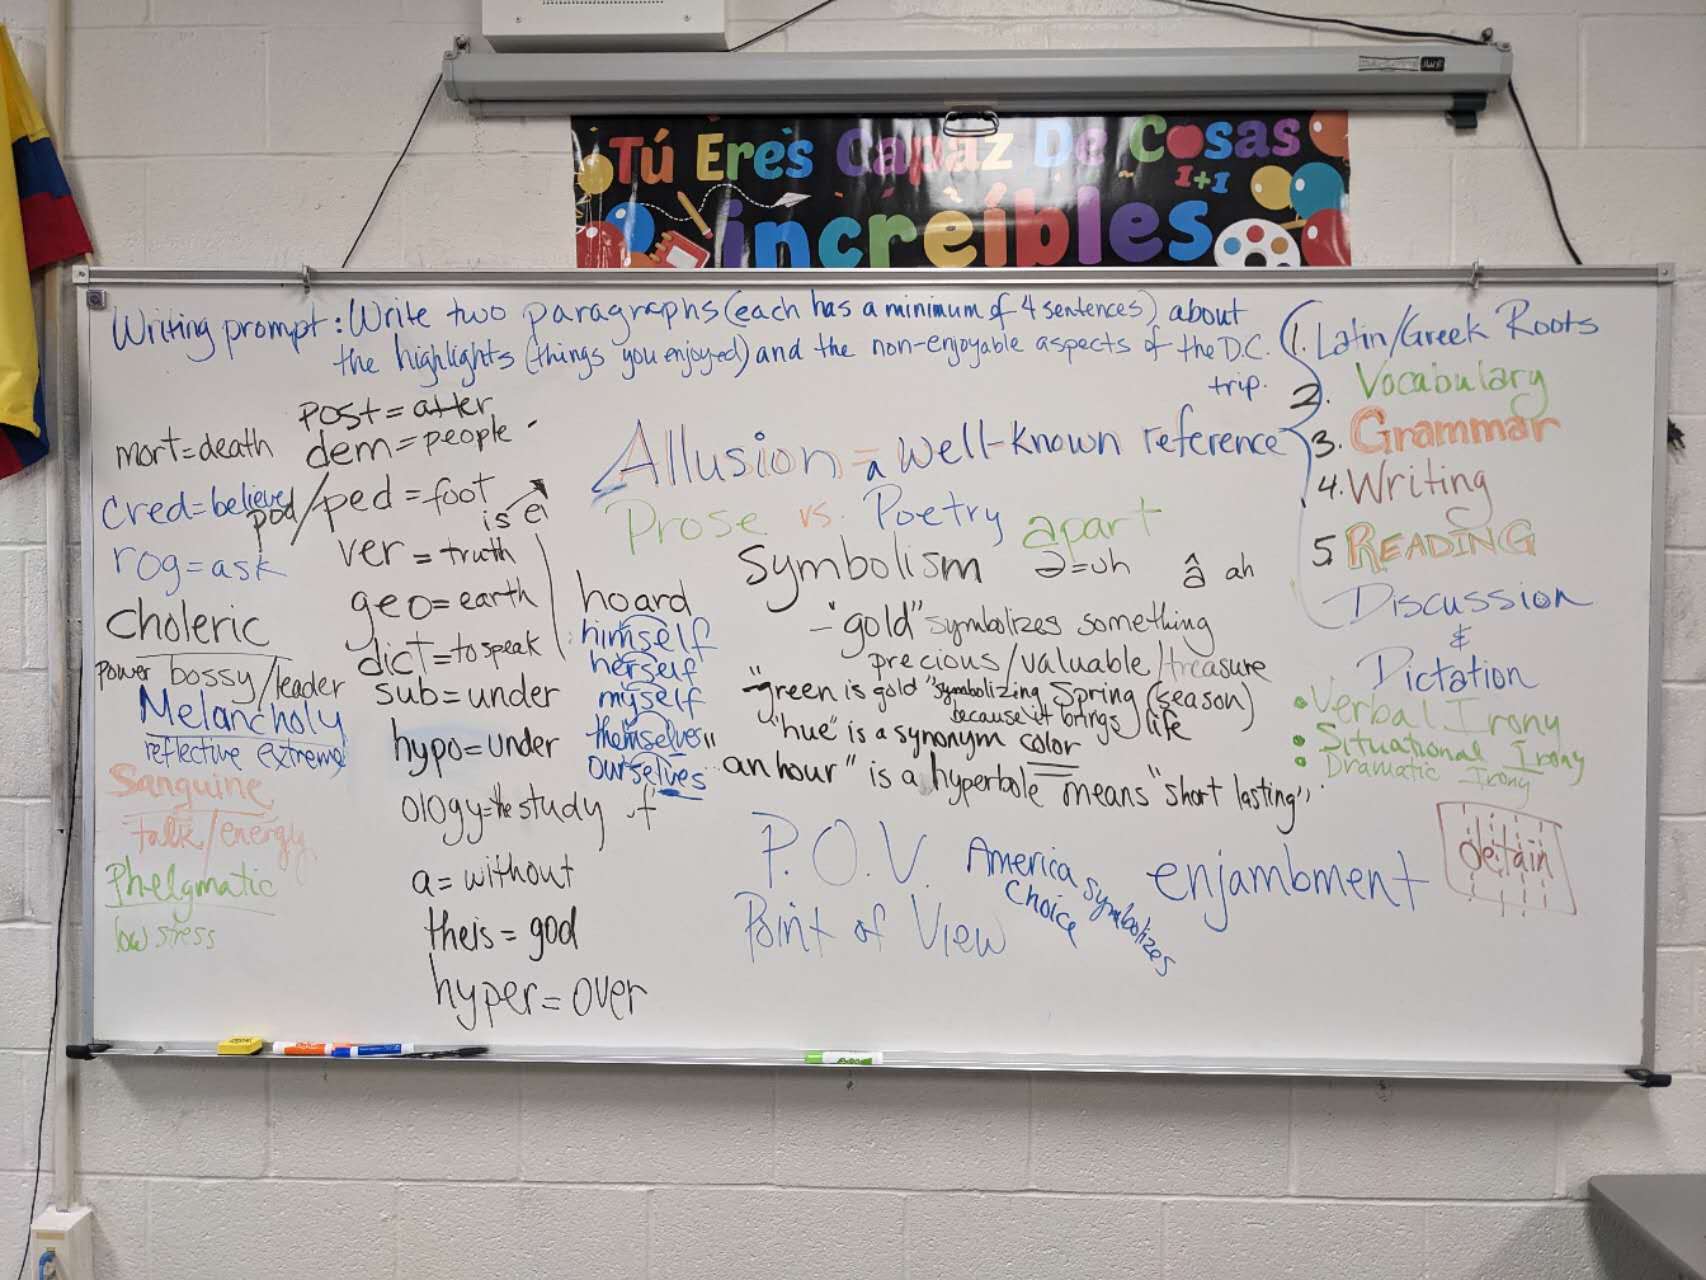 Tú Eres Capaz De Cosas
1+1
increíbles
Writing prompt: Write two paragraphs (each has a minimum of 4 sentences) about
the highlights (things you enjoyed) and the non-enjoyable aspects of the D.C.
trip.
post = after
mort=death
dem=people
cred=believe
pod/ped = foot
is e
rog=ask
ver = truth
geo=earth
dict=to speak
sub=under
hypo=under
ology=the study of
a=without
theis = god
hyper=over
Choleric
power bossy/leader
Melancholy
reflective extreme
Sanguine
talk/energy
Phelgmatic
low stress
hoard
himself
herself
myself
themselves
ourselves
Allusion = a well-known reference
Prose vs. Poetry
apart
ə=uh
â ah
Symbolism
- "gold" symbolizes something
precious/valuable/treasure
"green is gold" symbolizing Spring (season)
because it brings life
"hue" is a synonym color
"an hour" is a hyperbole means "short lasting".
P.O.V.
Point of View
America symbolizes
Choice
enjambment
detain
1. Latin/Greek Roots
2. Vocabulary
3. Grammar
4. Writing
5 READING
Discussion
&
Dictation
• Verbal Irony
• Situational Irony
• Dramatic Irony